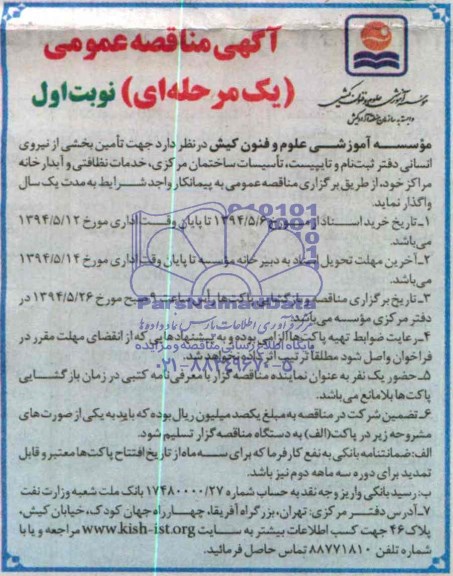 آگهی مناقصه عمومی
(یک مرحله‌ای) نوبت اول
مؤسسه آموزشی علوم و فنون کیش در نظر دارد جهت تأمین بخشی از نیروی
انسانی دفتر ثبت‌نام و تایپیست، تأسیسات ساختمان مرکزی، خدمات نظافتی و آبدارخانه
مراکز خود، از طریق برگزاری مناقصه عمومی به پیمانکار واجد شرایط به مدت یک سال
واگذار نماید.
۱ـ تاریخ خرید اسناد از ۱۳۹۴/۵/۶ تا پایان وقت اداری مورخ ۱۳۹۴/۵/۱۲
می‌باشد.
۲ـ آخرین مهلت تحویل اسناد به دبیرخانه مؤسسه تا پایان وقت اداری مورخ ۱۳۹۴/۵/۱۴
می‌باشد.
۳ـ تاریخ برگزاری مناقصه و بازگشایی پاکت‌ها مورخ ۱۳۹۴/۵/۲۶ در
دفتر مرکزی مؤسسه می‌باشد.
۴ـ رعایت ضوابط تهیه پاکت‌ها الزامی بوده و به پیشنهادهایی که از انقضای مهلت مقرر در
فراخوان واصل شود مطلقاً ترتیب اثر داده نخواهد شد.
۵ـ حضور یک نفر به عنوان نماینده مناقصه گزار با معرفی‌نامه کتبی در زمان بازگشایی
پاکت‌ها بلامانع می‌باشد.
۶ـ تضمین شرکت در مناقصه به مبلغ یکصد میلیون ریال بوده که باید به یکی از صورت‌های
مشروحه زیر در پاکت (الف) به دستگاه مناقصه گزار تسلیم شود.
الف: ضمانتنامه بانکی به نفع کارفرما که برای سه ماه از تاریخ افتتاح پاکت‌ها معتبر و قابل
تمدید برای دوره سه ماهه دوم نیز باشد.
ب: رسید بانکی واریز وجه نقد به حساب شماره ۱۷۴۸۰۰۰۰/۲۷ بانک ملت شعبه وزارت نفت
۷ـ آدرس دفتر مرکزی: تهران، بزرگراه آفریقا، چهارراه جهان کودک، خیابان کیش،
پلاک ۴۶ جهت کسب اطلاعات بیشتر به سایت www.kish-ist.org مراجعه و یا با
شماره تلفن ۸۸۷۷۱۸۱۰ تماس حاصل فرمائید.
ParsNamadData
پایگاه اطلاع رسانی مناقصه و مزایده
۰۲۱-۸۸۳۴۹۶۷۰-۵